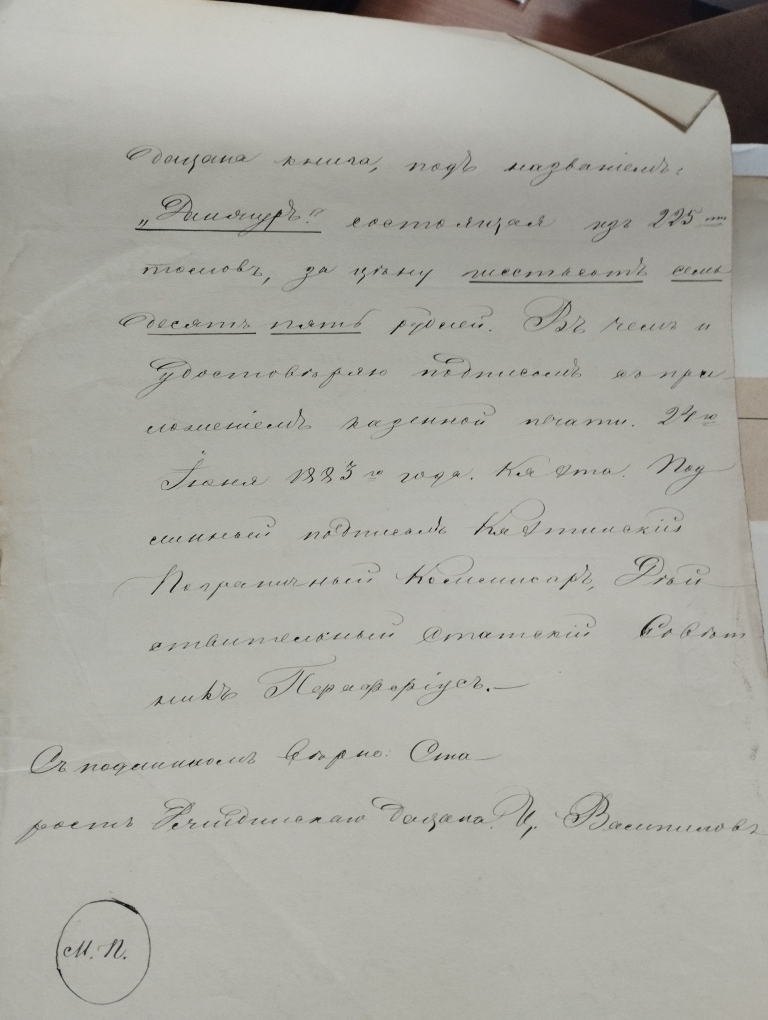 дацана книга, подъ названіемъ:
„Данжуръ" состоящая изъ 225 ти
томовъ, за цѣну шестьсотъ семь
десятъ пять рублей. Въ чемъ и
удостовѣряю подписомъ съ при-
ложеніемъ казенной печати. 24 го
Іюня 1883 го года. Кяхта. Под
линный подписалъ Кяхтинскій
Пограничный Коммисаръ, Дѣй
ствительный Статскій Совѣт
никъ
Съ подлиннымъ вѣрно: Ста-
роста дацана. Ц. Вампиловъ
М. П.